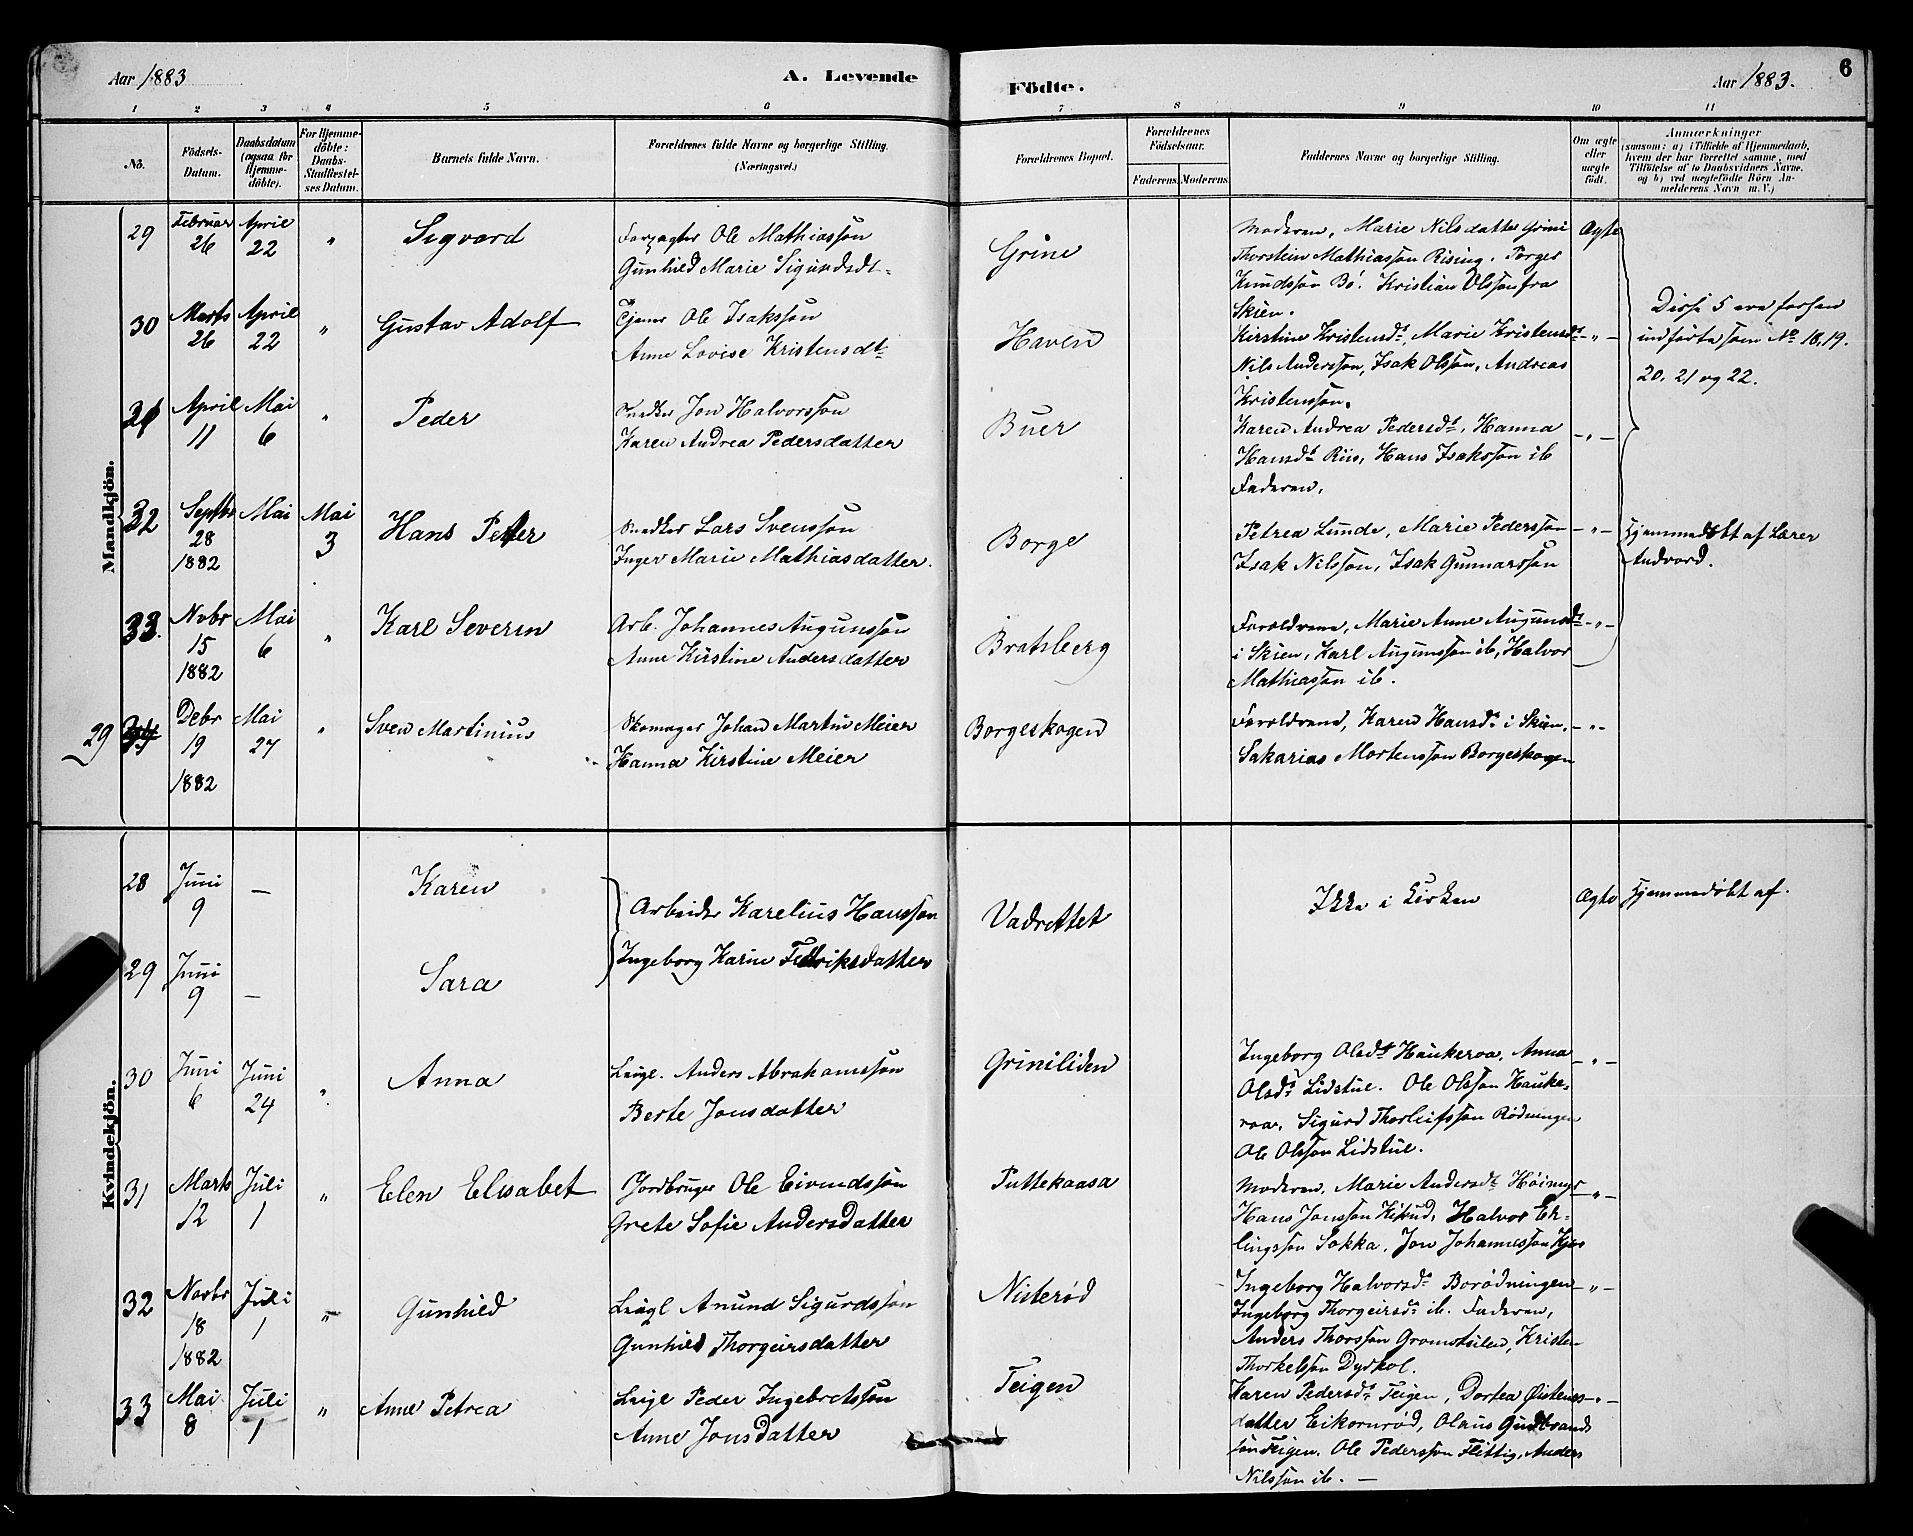 Aar 1883
A. Levende
Födte.
Aar 1883.
6
1 2 3 4 5 6 7 8 9 10 11
No.
Födsels-
Datum.
Daabsdatum
(ogsaa for
Hjemme-
döbte).
For Hjemme-
döbte:
Daabs-
Stadfæstel-
ses Datum.
Barnets fulde Navn.
Forældrenes fulde Navne og borgerlige Stilling.
(Næringsvei.)
Forældrenes Bopæl.
Forældrenes
Födselsaar.
Faderens. Moderens.
Faddernes Navne og borgerlige Stilling.
Om ægte
eller
uægte
födt.
Anmærkninger
(saasom: a) i Tilfælde af Hjemmedaab,
hvem der har forrettet samme, med
Tilföielse af to Daabsvidners Navne.
og b) ved uægtefödte Börn An-
melderens Navn m. V.)
Mandkjön.
29 Februar 26 April 22 " Sigvard
Forpagter Ole Mathiassøn
Gunhild Marie Sigundsdt.
Grine
Moderen, Marie Nilsdatter Grini
Thorstein Mathiassøn Rising, Torger
Knudssøn Bø. Kristian Olssøn fra
Skien.
Ægte
30 Marts 26 April 22 " Gustav Adolf
Tjener Ole Isakssøn
Anne Lovise Kristensdt.
Haven
Kirstine Kristensdt, Marie Kristensdt
Nils Anderssøn, Isak Olssøn, Andreas
Kristenssøn.
- " -
Disse 5 ere forhen
indførte som No 18, 19.
20. 21 og 22.
31 April 11 Mai 6 " Peder
Snedker Jon Halvorssøn
Karen Andrea Pedersdatter
Buer
Karen Andrea Pedersdt, Hanna
Hansdt Riis, Hans Isakssøn ib
Faderen,
- " -
32 Septbr 28 1882 Mai Mai 3 Hans Petter
Snedker Lars Svenssøn
Inger Marie Mathiasdatter.
Borge
Petrea Lunde, Marie Pederssøn
Isak Nilssøn, Isak Gunnarssøn
- " -
Hjemmedøbt af Lærer
Andvord.
33. Novbr 15 1882 Mai 6 " Karl Severin
Arb. Johannes Augunssøn
Anne Kirstine Andersdatter
Bratsberg
Forældrene, Marie Anne Augunsdt
i Skien, Karl Augunssøn ib, Halvor
Mathiassøn ib.
- " -
29 34 Debr 19 1882 Mai 27 " Sven Martinius
Skomager Johan Martin Meier
Hanna Kirstine Meier
Borgeskogen
Forældrene, Karen Hansdt i Skien,
Sakarias Mortenssøn Borgeskogen
- " -
Kvindekjön.
28 Juni 9 — Karen
Arbeider Karelius Hanssøn
Vadrettet
Ikke i Kirken
Ægte
Hjemmedøbt af.
29 Juni 9 — Sara
Ingeborg Karine Fedriksdatter
30 Juni 6 Juni 24 " Anna
Leigl. Anders Abrahamssøn
Berte Jonsdatter
Griniliden
Ingeborg Olsdt Haukeroa, Anna
Olsdt Lidstul. Ole Olssøn Hauke-
roa, Sigurd Thorleifssøn Rødningen
Ole Olssøn Lidstul.
- " -
31 Marts 12 Juli 1 " Elen Elisabet
Jordbruger Ole Eivindssøn
Grete Sofie Andersdatter
Puttekaasa
Moderen, Marie Andersdt
Hans Jonssøn Halvor Er-
lingssøn Sokka, Jon Johannessøn
- " -
32 Novbr 18 1882 Juli 1 " Gunhild
Leigl Anund Sigurdssøn
Gunhild Thorgeirsdatter
Nisterød
Ingeborg Halvorsdt Borødningen
Ingeborg Thorgeirsdt ib. Faderen,
Anders Thorssøn Kristen
Thorkelssøn Dyrkol.
- " -
33 Mai 8 Juli 1 " Anne Petrea
Leigl Peder Ingebretssøn
Anne Jonsdatter
Teigen
Karen Pedersdt Teigen, Dortea Øistens-
datter Eikornrød, Olaus Gudbrands
søn Teigen. Ole Pederssøn Flittig, Anders
Nilssøn ib. —
- " -